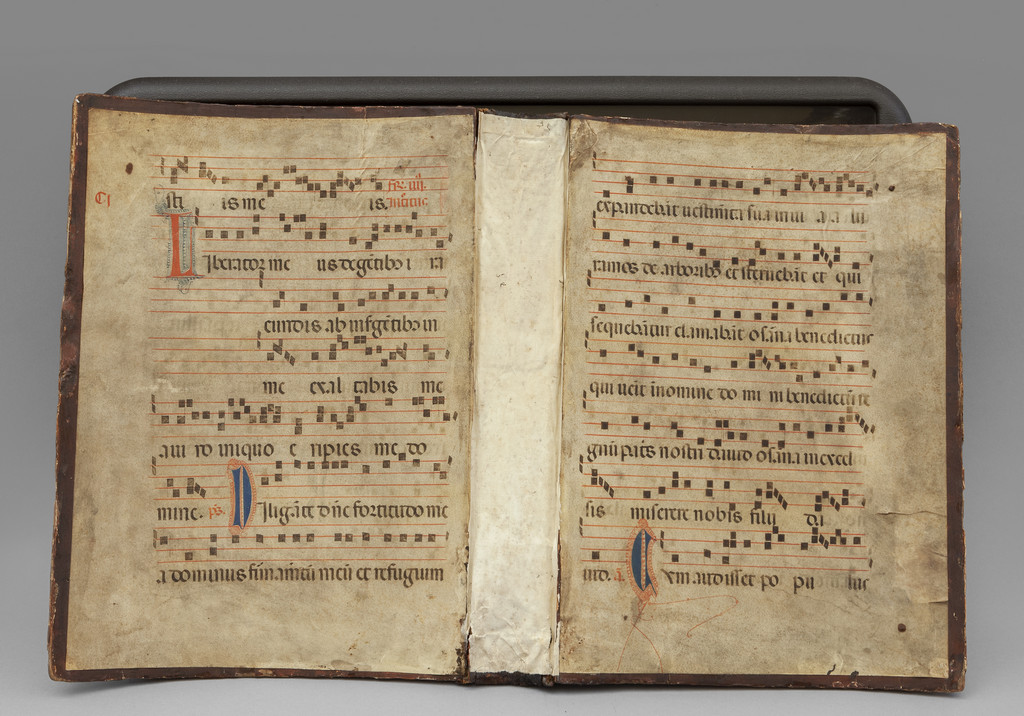 sti is me is. fer. iiii.
introit.
Liberator me us de gẽtibo i ra
cundis ab insgẽtibo in
me exal tabis me
a ui ro iniquo e ripies me do
mine. ps. Diligã te dñe fortitudo me
a dominus firmamẽtũ meũ et refugium
expandebãt uestimẽta sua in ui a a lii
ramos de arboribo et sternebãt et qui
sequebãtur clamabãt osãna benedictus
qui uẽit ĩ nomine do mi ni benedictũ re
gnũ pãtis nostri dauid osãna in excel
sis miserere nobis filii da
uid. Cum audisset po pu lus